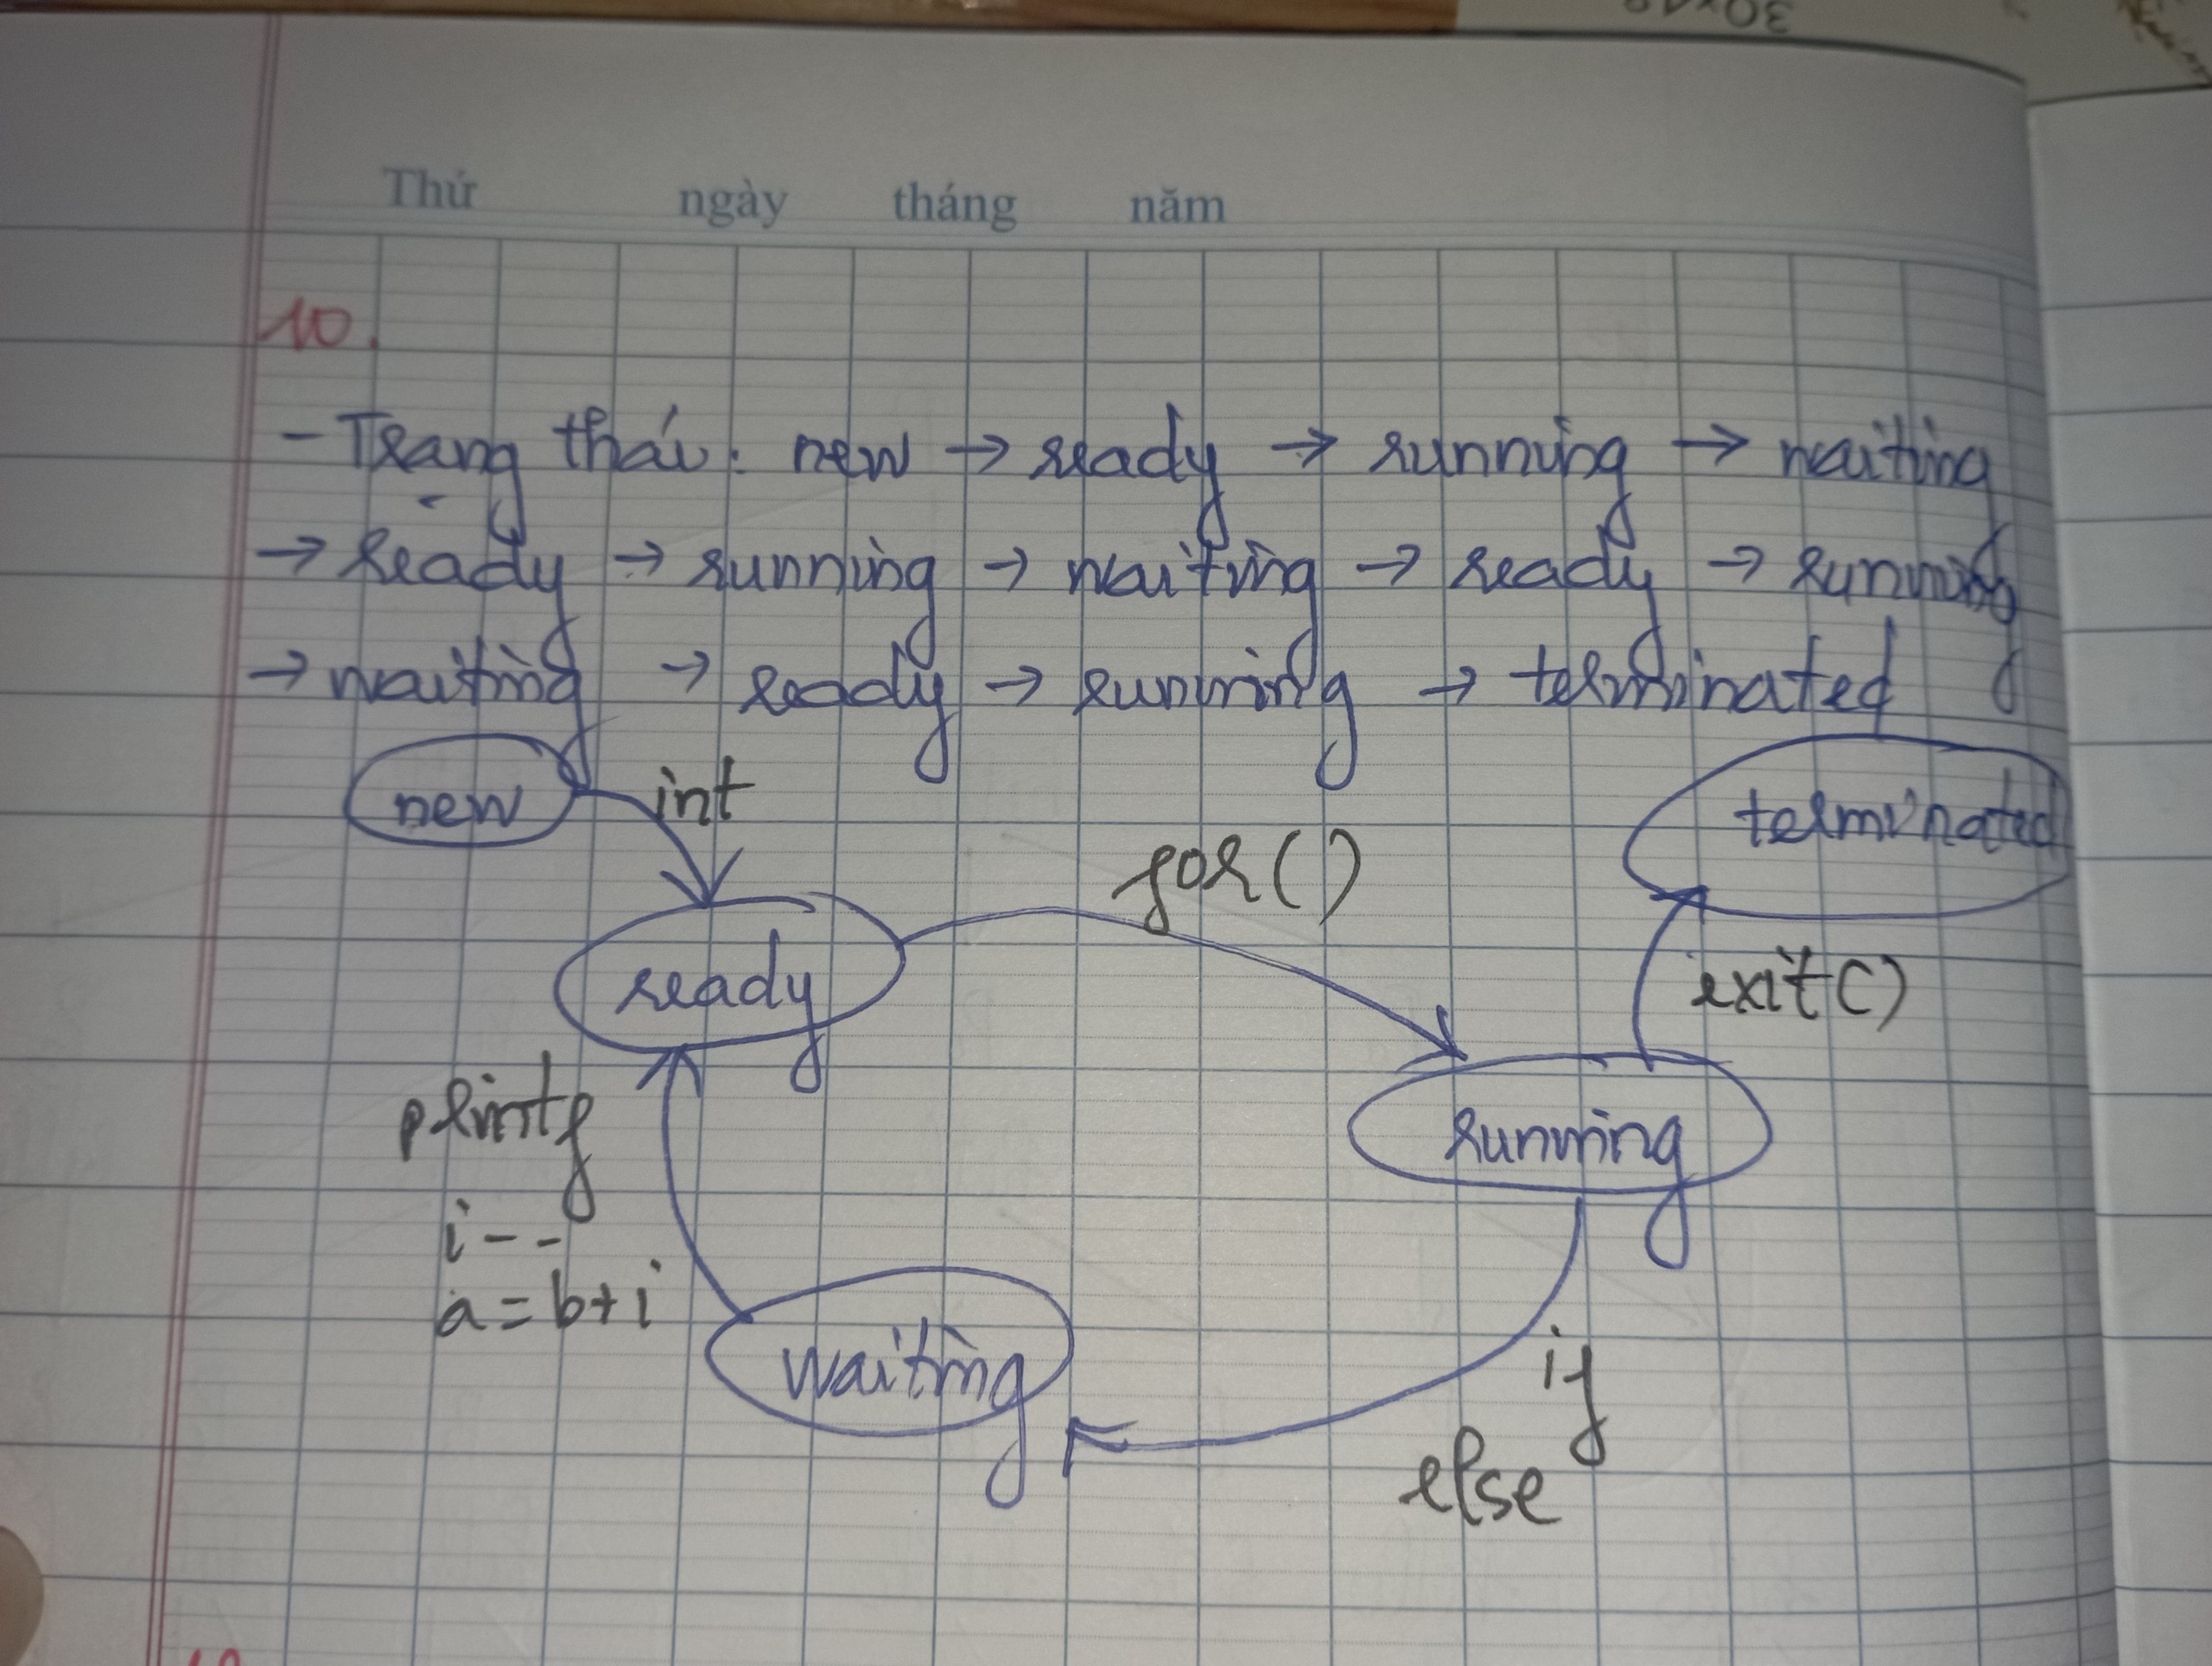 30×18
Thứ ngày tháng năm
10.
- Trạng thái: new → ready → running → waiting
→ ready → running → waiting → ready → running
→ waiting → ready → running → terminated
new int
terminated
for()
ready
exit()
printf
running
i--
a = b+i
waiting
if
else